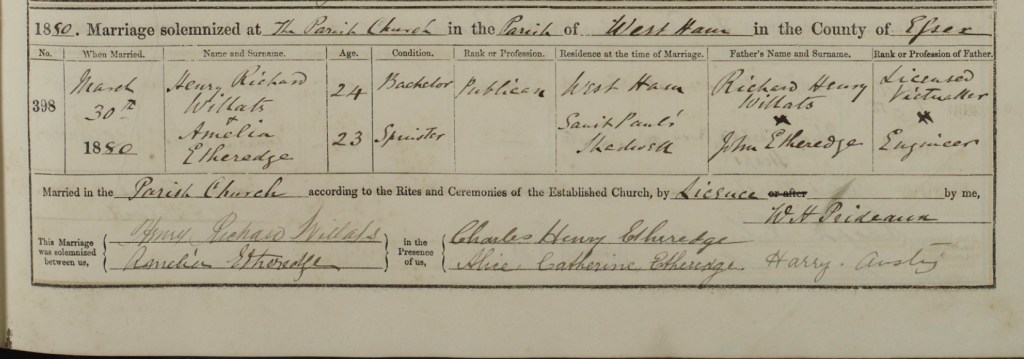 1880. Marriage solemnized at The Parish Church in the Parish of West Ham in the County of Essex
No. When Married. Name and Surname. Age. Condition. Rank or Profession. Residence at the time of Marriage. Father's Name and Surname. Rank or Profession of Father.
398 March 30th 1880 Henry Richard Willats 24 Bachelor Publican West Ham Richard Henry Willats Licensed Victualler
+ Amelia Etheredge 23 Spinster Saint Paul's Shadwell John Etheredge Engineer
Married in the Parish Church according to the Rites and Ceremonies of the Established Church, by Licence or after by me,
W H Prideaux
This Marriage was solemnized between us, Henry Richard Willats in the Presence of us, Charles Henry Etheredge
Amelia Etheredge Alice Catherine Etheredge. Harry. Austin